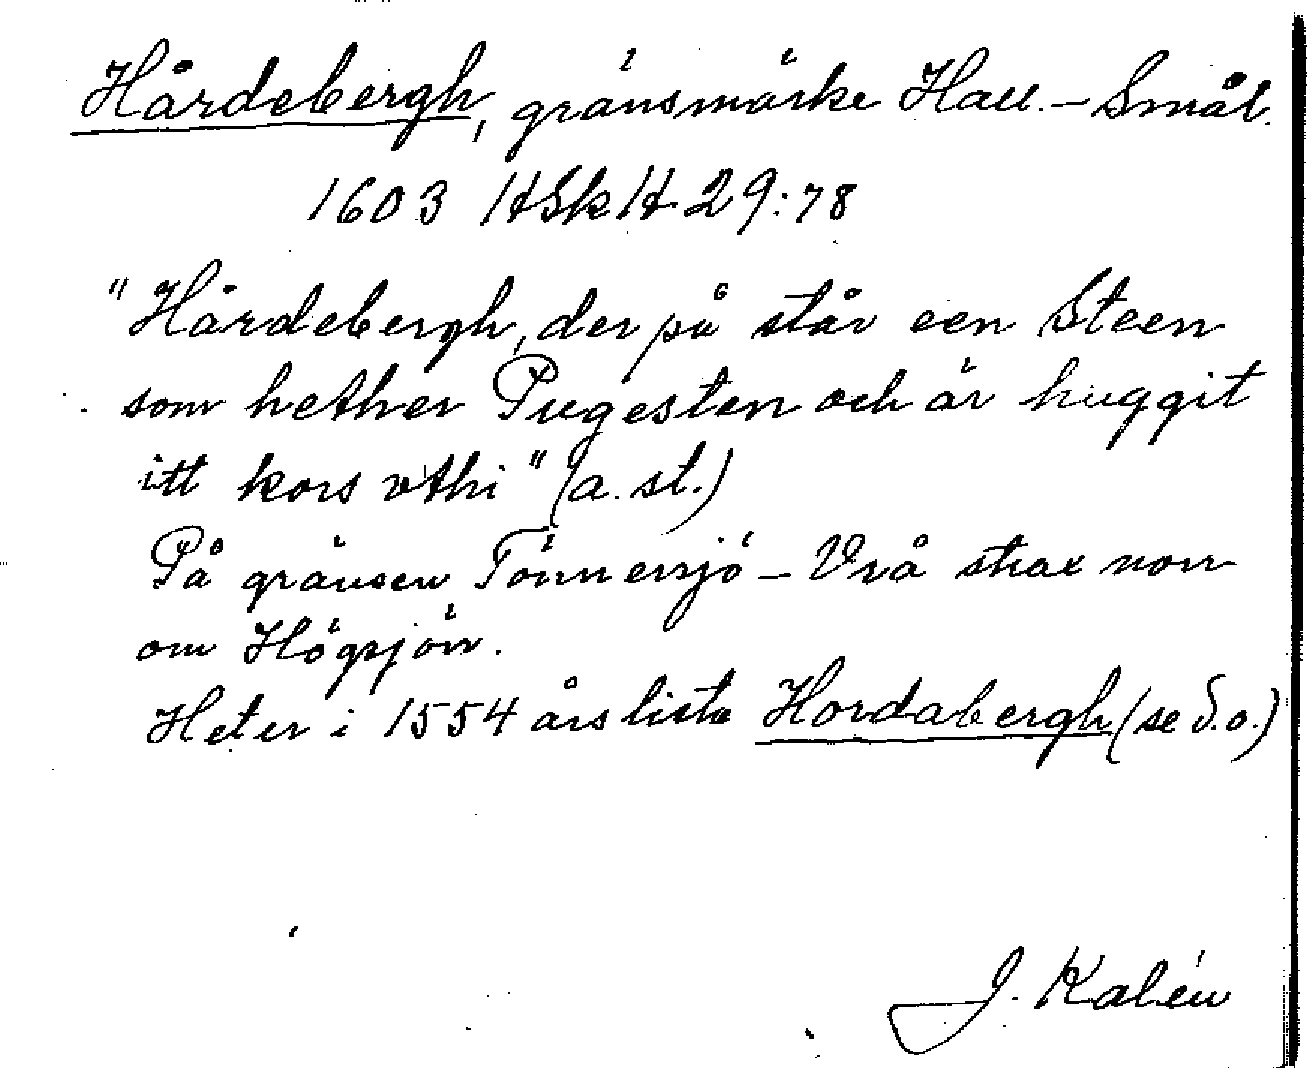 Hårdebergh, gränsmärke Hall. – Smål.
1603 HSkH 29:78
"Hårdebergh, der på står een Steen
som hether Pugesten och är huggit
itt kors vthi" (a. st.)
På gränsen Tönnersjö – Vrå strax norr
om Högsjön.
Heter i 1554 års lista Hordabergh (se d.o.)
J. Kalén